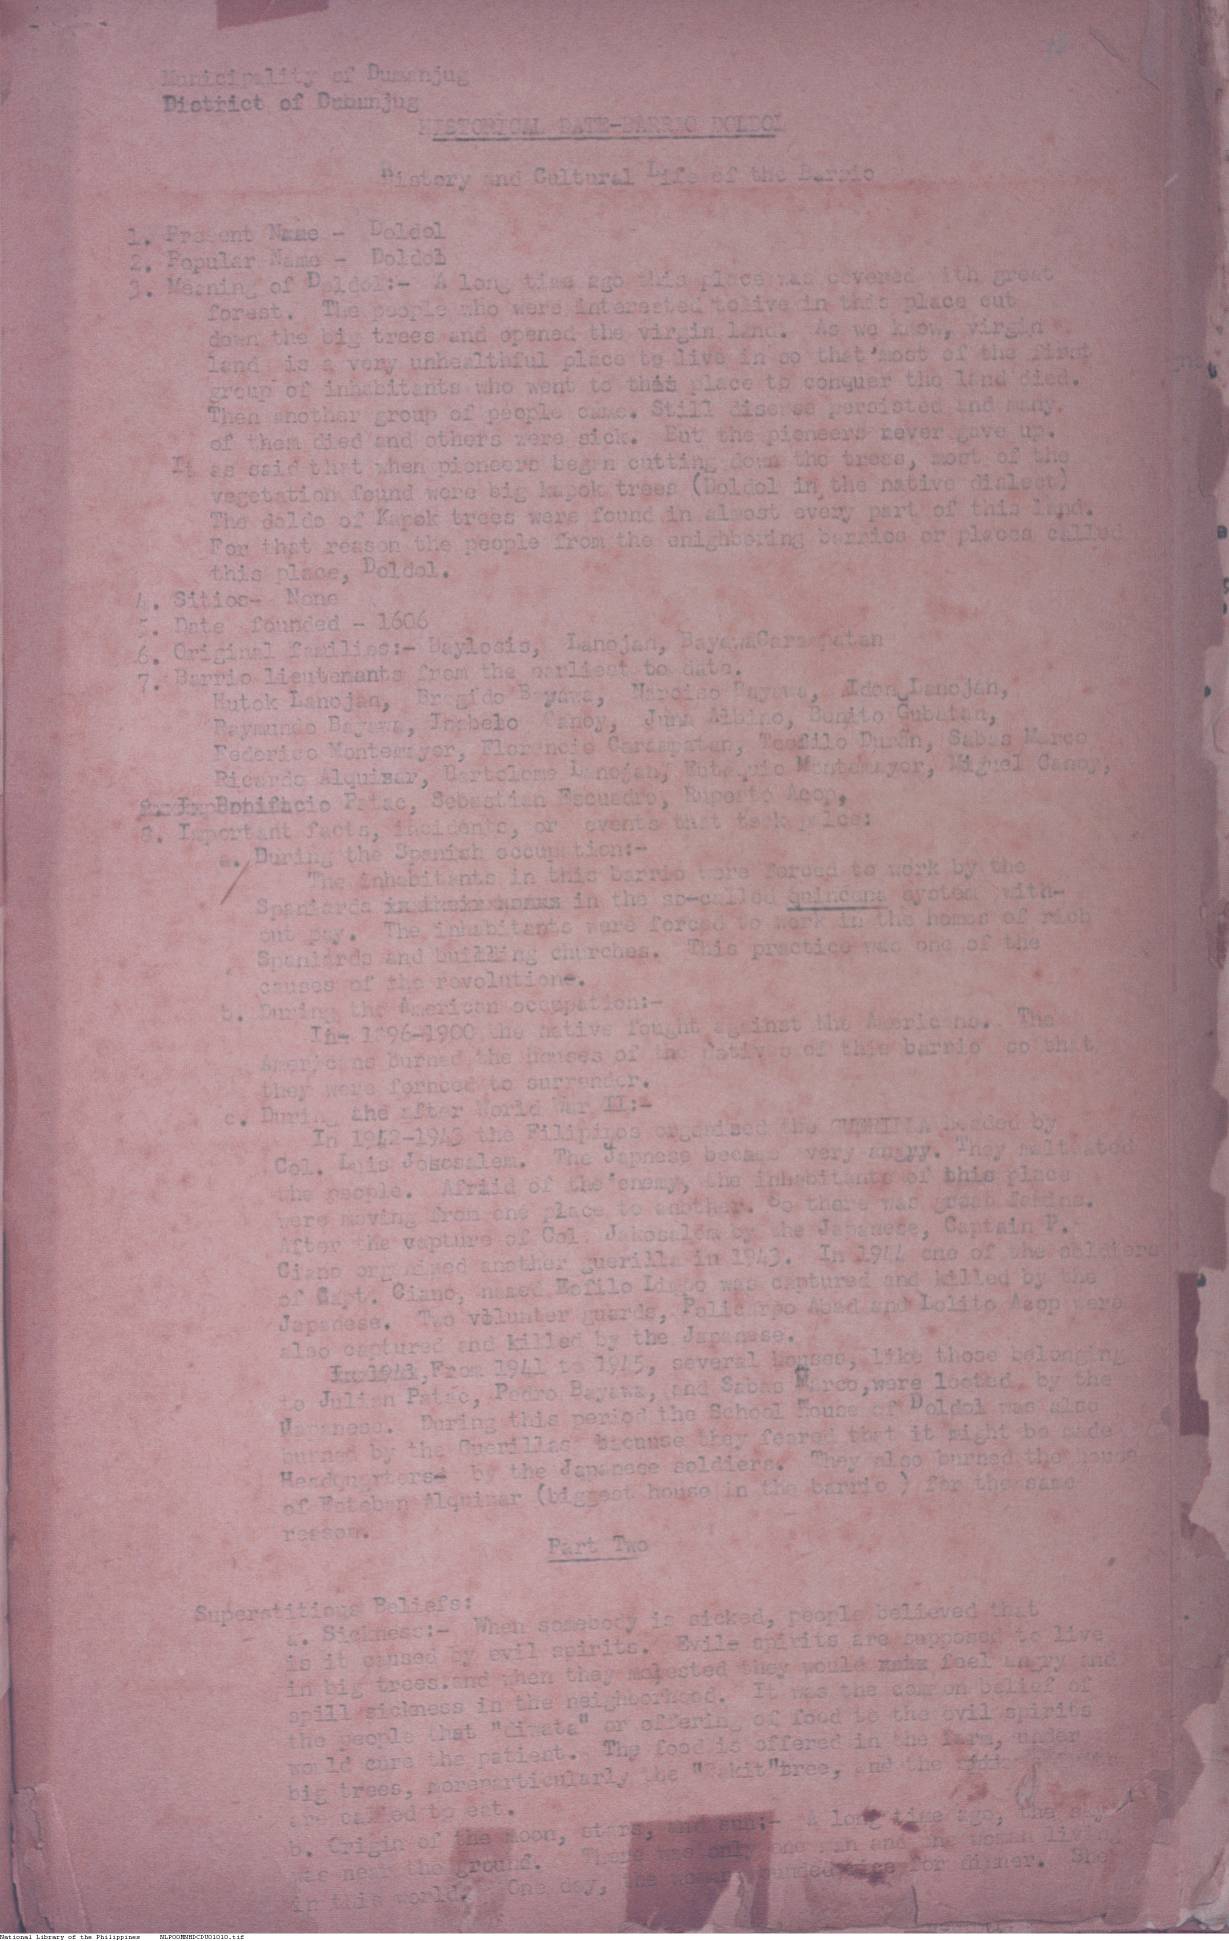 Municipality of Dumanjug
District of Dumunjug
HISTORICAL DATE-BARRIO DOLDOL
History and Cultural Life of the Barrio
1. Present Name - Doldol
2. Popular Name - Doldol
3. Meaning of Doldol:- A long time ago this place was covered ith great
forest. The people who were interested tolive in this place cut
down the big trees and opened the virgin land. As we know, virgin
land is a very unhealthful place to live in so that most of the first
group of inhabitants who went to this place to conquer the land died.
Then another group of people came. Still disease persisted and many
of them died and others were sick. But the pioneers never gave up.
It as said that when pioneers began cutting down the trees, most of the
vegetation found were big kapok trees (Doldol in the native dialect)
The doldo of Kapok trees were found in almost every part of this land.
For that reason the people from the enighboring barrios or places called
this place, Doldol.
4. Sitios- None
5. Date founded - 1606
6. Original families:- Baylosis, Lanojan, BayawaCarampatan
7. Barrio lieutenants from the earliest to date.
Hutok Lanojan, Bregido Bayawa, Narciso Bayawa, Idon Lanojan,
Raymundo Bayawa, Canoy, Juan Albino, Bonito Gubatan,
Federico Montemayor, Florencio Carampatan, Teofilo Duran, Sabas Marco
Ricardo Alquizar, Bartolome Lanojan, Montemayor, Miguel Canoy,
Bonifacio Patac, Sebastian Escuadro, Ruperto Acop,
8. Important facts, incidents, or events that took place:
a. During the Spanish occupation:-
The inhabitants in this barrio were forced to work by the
Spaniards in their homes in the so-called quincena system with-
out pay. The inhabitants were forced to work in the homes of rich
Spaniards and building churches. This practice was one of the
causes of the revolution.
b. During the American occupation:-
In 1896-1900 the native fought against the Americans. The
Americans burned the houses of the natives of this barrio so that
they were fornced to surrender.
c. During the after World War II:-
In 1942-1943 the Filipinos organised the GUERILLA headed by
Col. Luis Jokosalem. The Japnese became very angry. They
the people. Afriid of the enemy, the inhabitants of this place
were moving from one place to another. So there was great famine.
After the vapture of Col. Jakosalem by the Japanese, Captain P.
Ciano organized another guerilla in 1943. In 1944 one of the soldiers
of Capt. Ciano, named was captured and killed by the
Japanese. Two volunter guards, Policarpo Abad and Lolito Acop were
also captured and killed by the Japanese.
In 1941,From 1941 to 1945, several houses, like those belonging
to Julian Patac, Pedro Bayawa, and Sabas Marco,were looted by the
Japanese. During this period the School House of Doldol was also
burned by the Guerillas because they feared that it might be made
Headquarters by the Japanese soldiers. They also burned the house
of Esteban Alquizar (biggest house in the barrio ) for the same
reason.
Part Two
Superstitious Beliefs:
a. Sickness:- When somebody is sicked, people believed that
is it caused by evil spirits. Evil spirits are supposed to live
in big trees.and when they molected they would feel angry and
spill sickness in the neighborhood. It was the common belief of
the people that "diwata" or offering of food to the evil spirits
would cure the patient. The food is offered in the farm, under
big trees, moreparticularly the "Dakit"tree, and the
are called to eat.
b. Origin of the moon, stars, and sun:- A long time ago, the sky
was near the ground. There was only one man and one woman living
in this world. One day, the woman pounded rice for dinner. She
National Library of the Philippines NLPOOMNHDCDU01010.tif